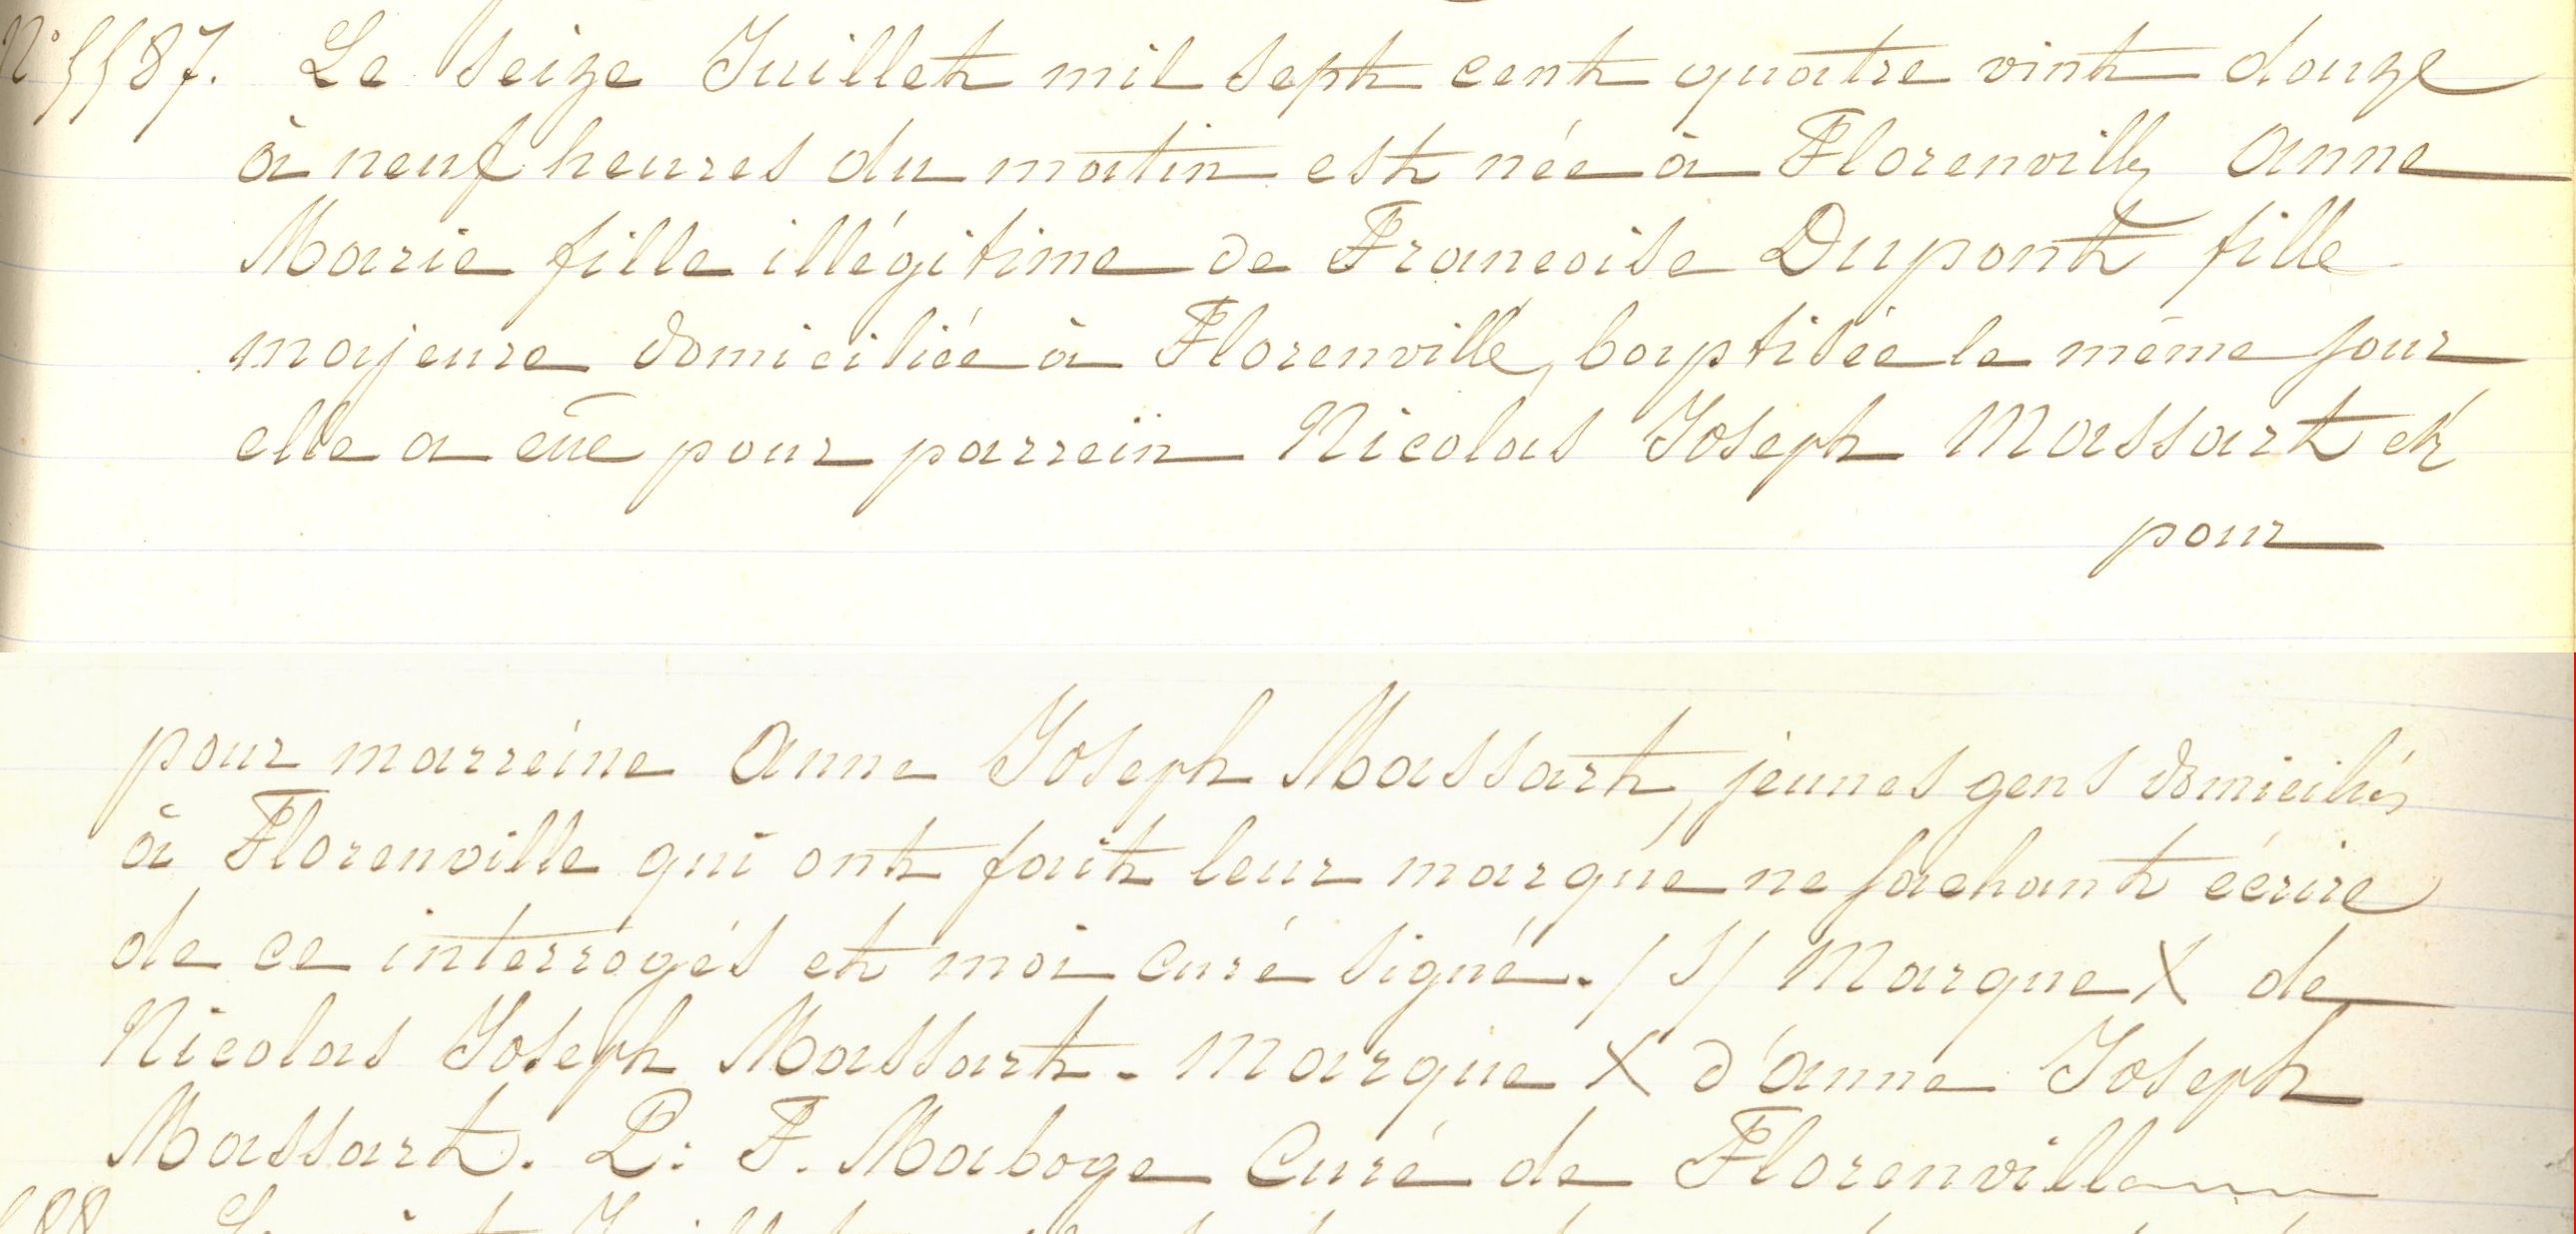 N° 5587. Le seize Juillet mil sept cent quatre vint douze
à neuf heures du matin est née à Florenville, Anne
Marie fille illégitime de Francoise Dupont fille
majeure domiciliée à Florenville, baptisée le même jour
elle a eüe pour parrein Nicolas Joseph Massart et
pour
pour marreine Anne Joseph Massart, jeunes gens domiciliés
à Florenville qui ont fait leur marque ne sachant écrire
de ce interrogés et moi curé signé. /S/ Marque X de
Nicolas Joseph Massart. Marque X d'anne Joseph
Massart. P: F. Maboge Curé de Florenville